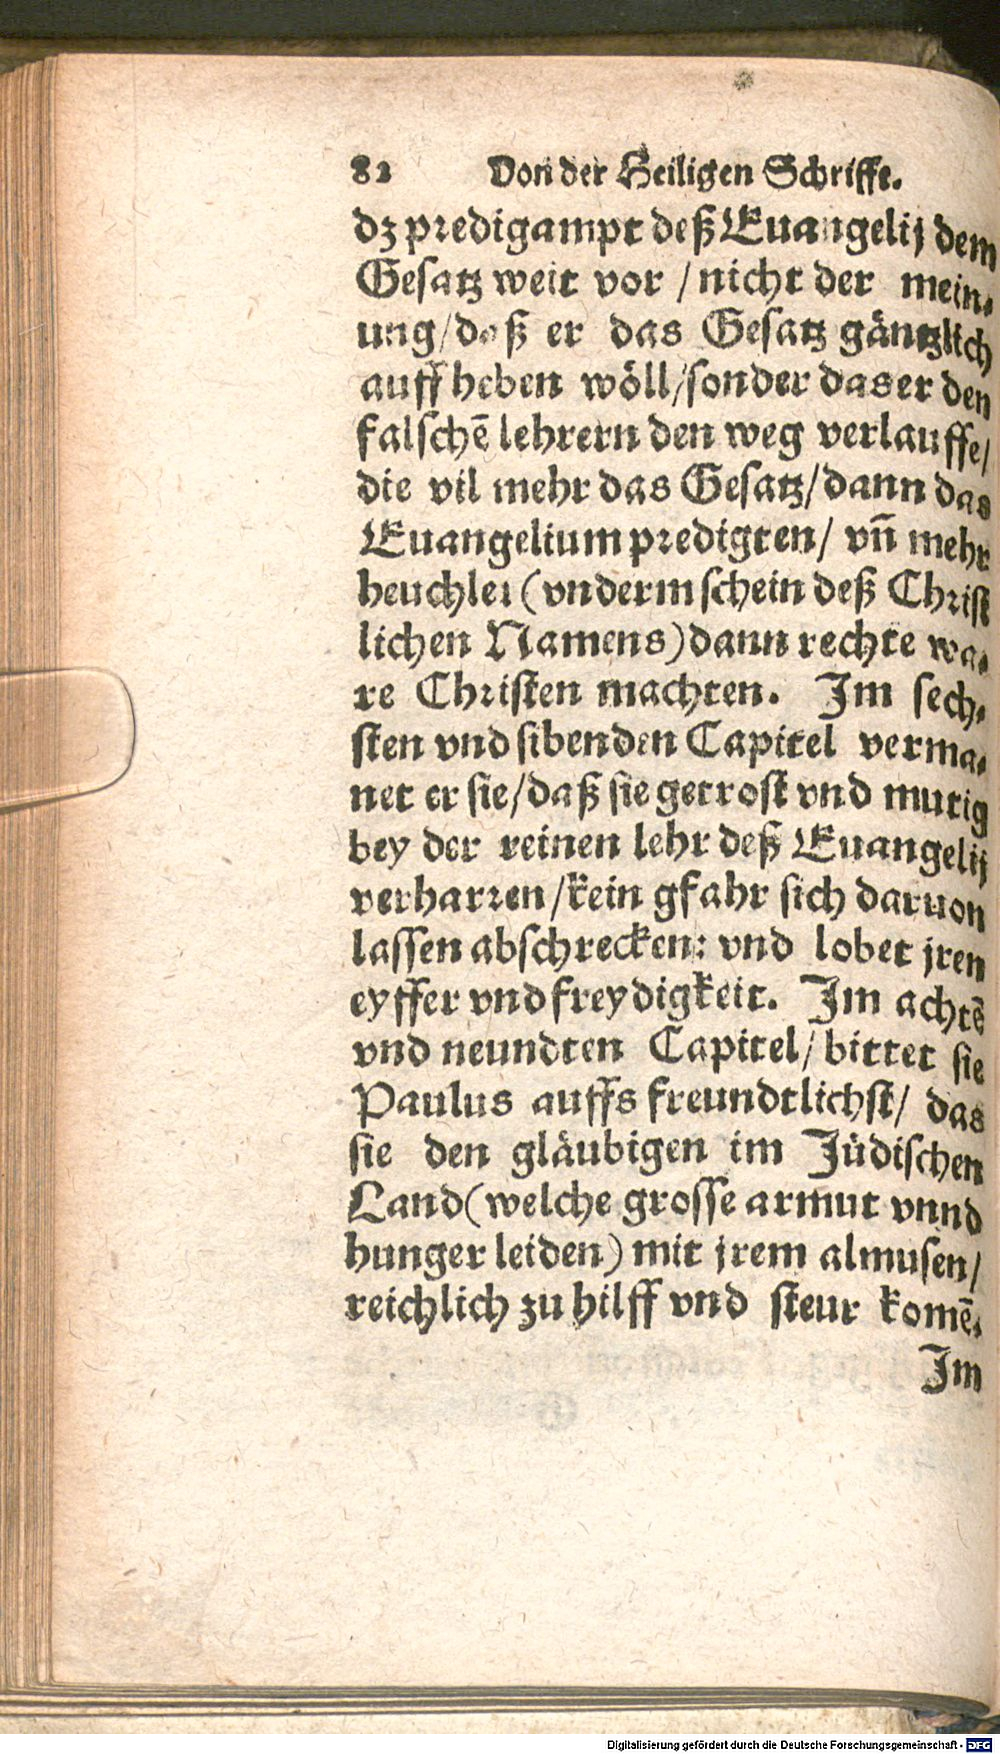 82 Von der Heiligen Schrifft.
dz predigampt deß Euangelij dem
Gesatz weit vor / nicht der mein-
ung / daß er das Gesatz gäntzlich
auffheben wöll / sonder das er den
falschē lehrern den weg verlauffe /
die vil mehr das Gesatz / dann das
Euangelium predigten / vñ mehr
heuchler (vnderm schein deß Christ
lichen Namens) dann rechte wa-
re Christen machten. Im sech-
sten vnd sibenden Capitel verma-
net er sie / daß sie getrost vnd mutig
bey der reinen lehr deß Euangelij
verharren / kein gfahr sich daruon
lassen abschrecken: vnd lobet jren
eyffer vnd freydigkeit. Im achtē
vnd neundten Capitel / bittet sie
Paulus auffs freundtlichst / das
sie den gläubigen im Jüdischen
Land (welche grosse armut vnnd
hunger leiden) mit jrem almusen /
reichlich zu hilff vnd steur komē.
Im
Digitalisierung gefördert durch die Deutsche Forschungsgemeinschaft - DFG